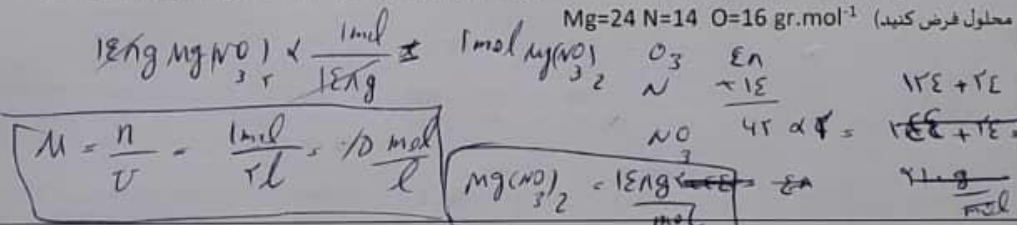 محلول فرض کنید) Mg=24 N=14 O=16 gr.mol⁻¹
۱۴۸g Mg(NO₃)₂ × 1mol / ۱۴۸g = 1mol Mg(NO₃)₂
O₃ ۴۸
N +۱۴
NO₃ ۶۲ × ۲ =
۱۲۴ + ۲۴
M = n / V = 1mol / ۲l = ۰/۵ mol / l
Mg(NO₃)₂ = ۱۴۸g / mol